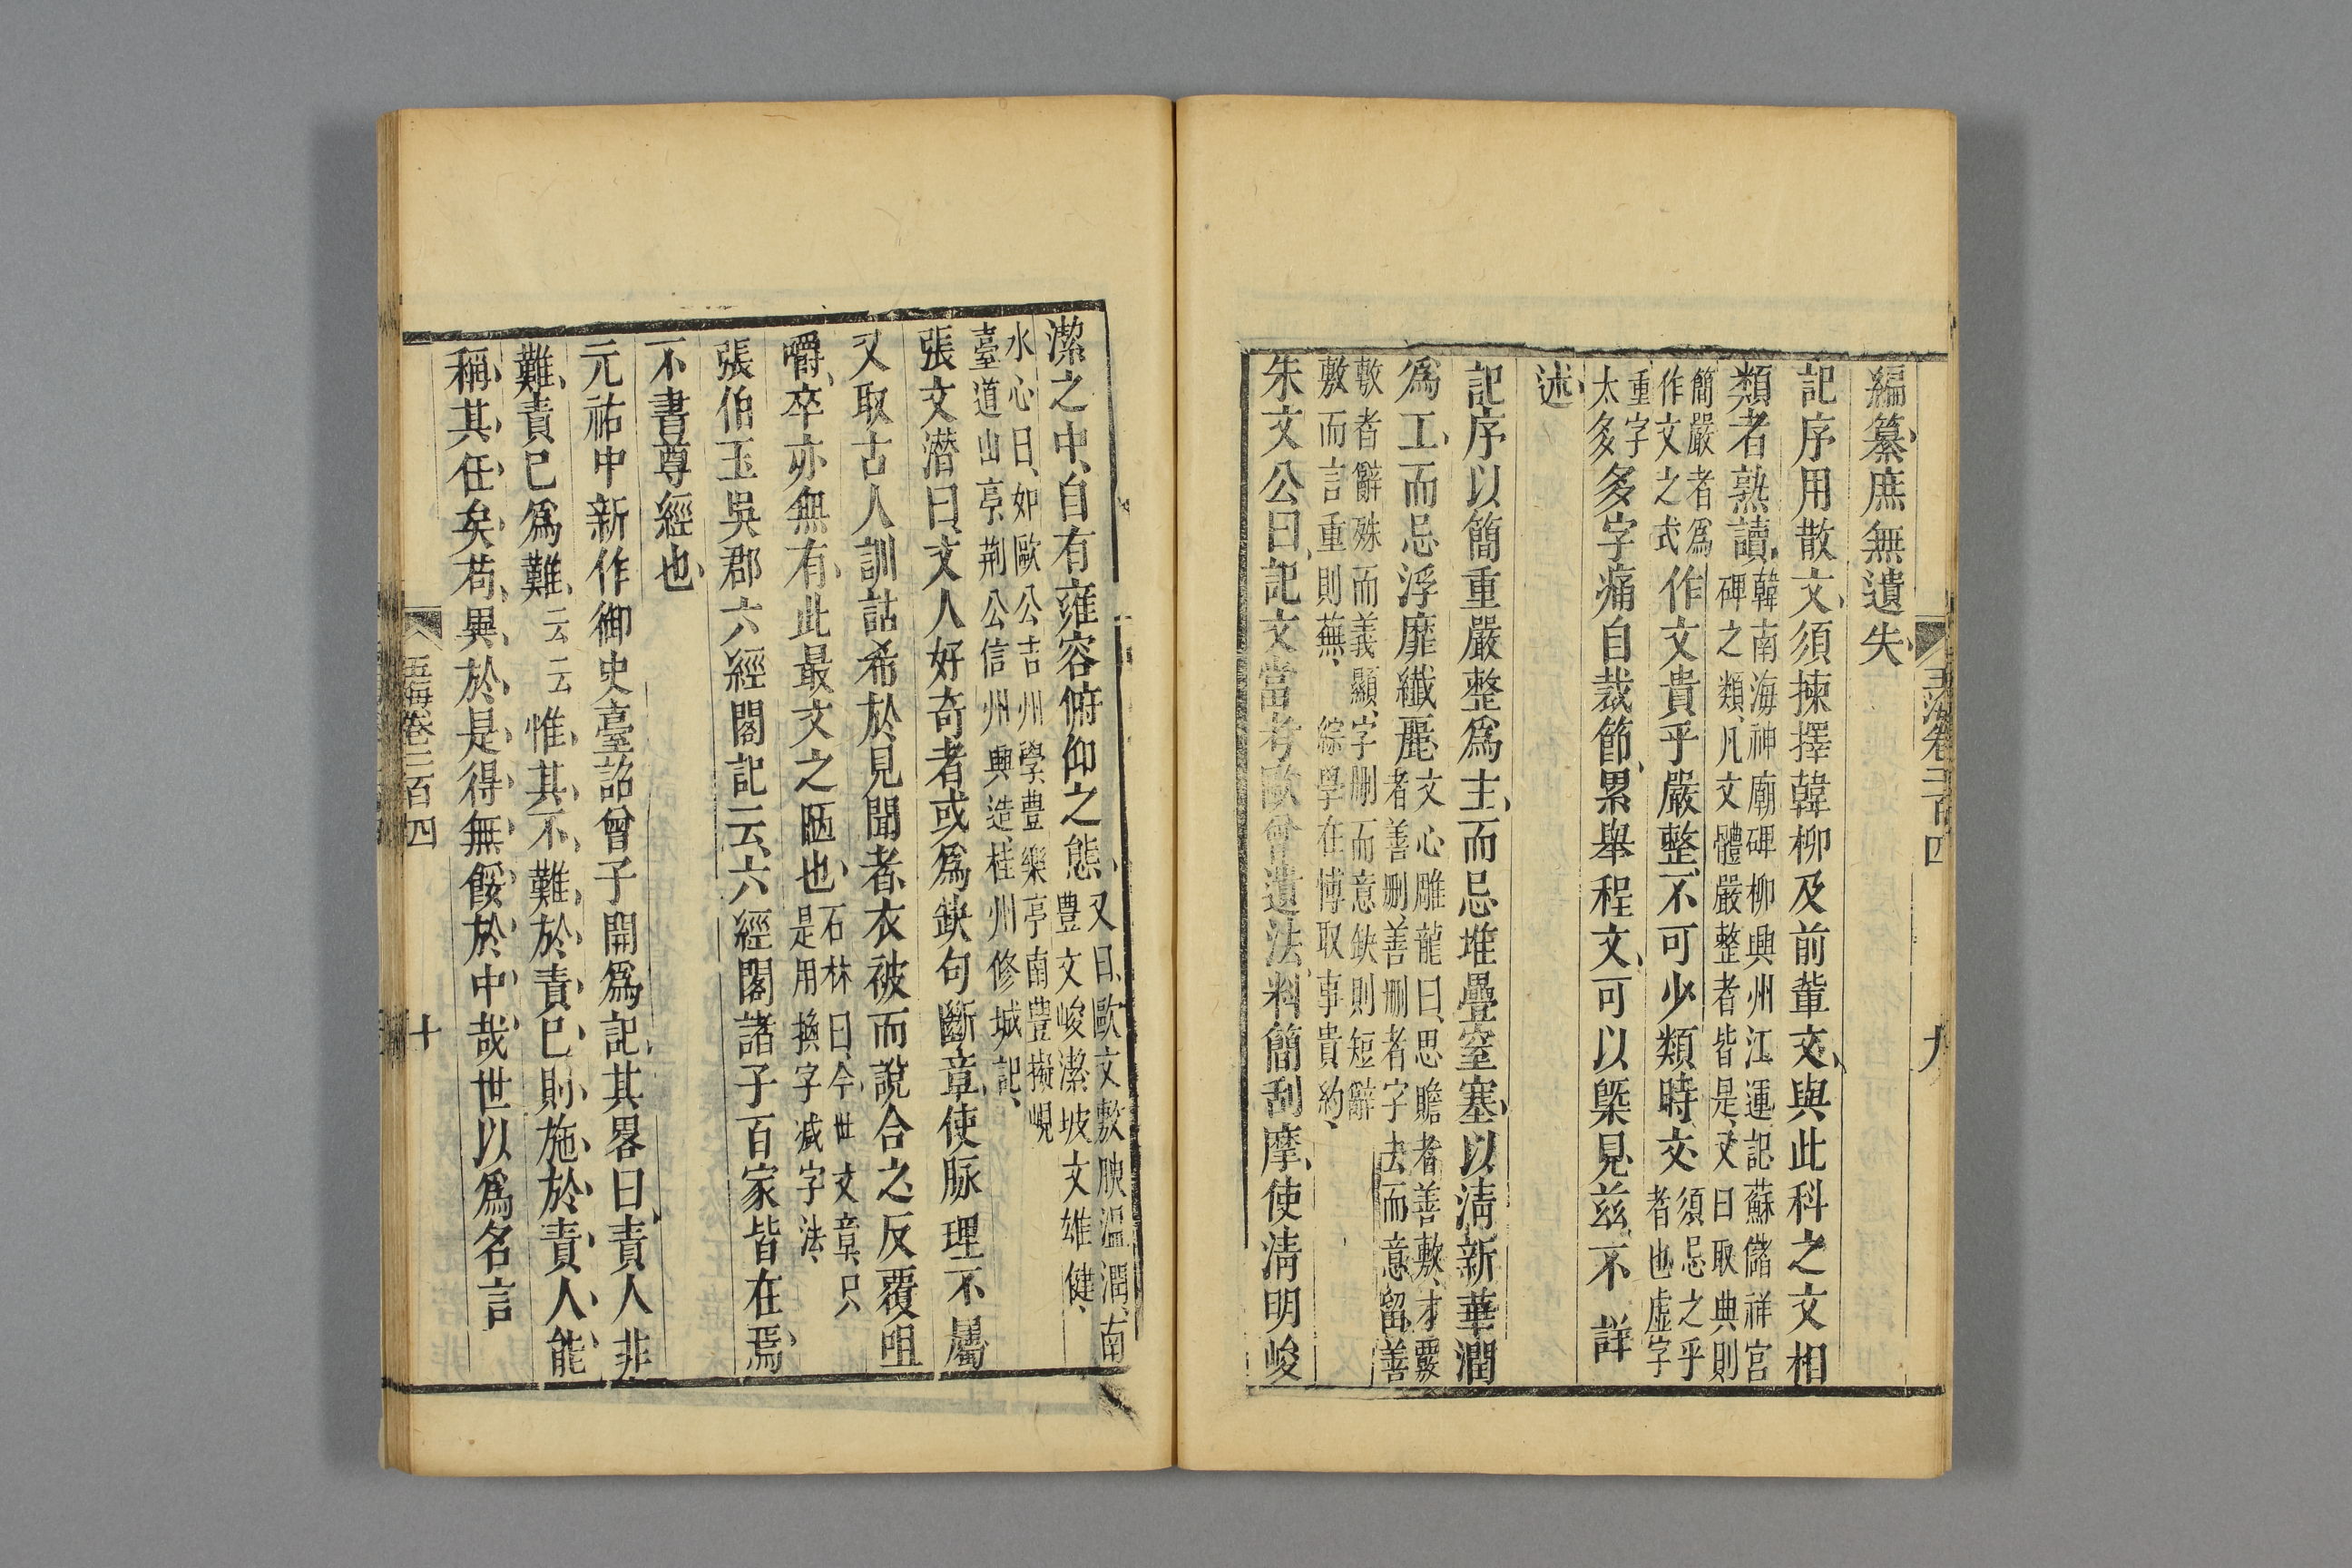 玉海卷二百四
九
編纂庶無遺失
記序用散文須揀擇韓柳及前輩文與此科之文相
類者熟讀
韓南海神廟碑柳興州江運記蘇儲祥宮
碑之類凡文體嚴整者皆是又曰取典則
簡嚴者爲
作文之式
作文貴乎嚴整不可少類時文
須忌之乎
者也虛字
重字
太多
多字痛自裁節累舉程文可以槩見兹不詳
述
記序以簡重嚴整爲主而忌堆疊窒塞以淸新華潤
爲工而忌浮靡纖麗
文心雕龍曰思贍者善敷才覈
者善刪善刪者字去而意留善
敷者辭殊而義顯字刪而意缺則短辭
敷而言重則蕪綜學在博取事貴約
朱文公曰記文當考歐曾遺法料簡刮摩使淸明峻
潔之中自有雍容俯仰之態
又曰歐文敷腴溫潤南
豊文峻潔坡文雄健
水心曰如歐公吉州學豊樂亭南豊擬峴
臺道山亭荆公信州興造桂州修城記
張文潜曰文人好奇者或爲缺句斷章使脉理不屬
又取古人訓詁希於見聞者衣被而說合之反覆咀
嚼卒亦無有此最文之陋也
石林曰今世文章只
是用換字減字法
張伯玉吳郡六經閣記云六經閣諸子百家皆在焉
不書尊經也
元祐中新作御史臺詔曾子開爲記其畧曰責人非
難責己爲難
云云
惟其不難於責己則施於責人能
稱其任矣苟異於是得無餒於中哉世以爲名言
玉海卷二百四
十